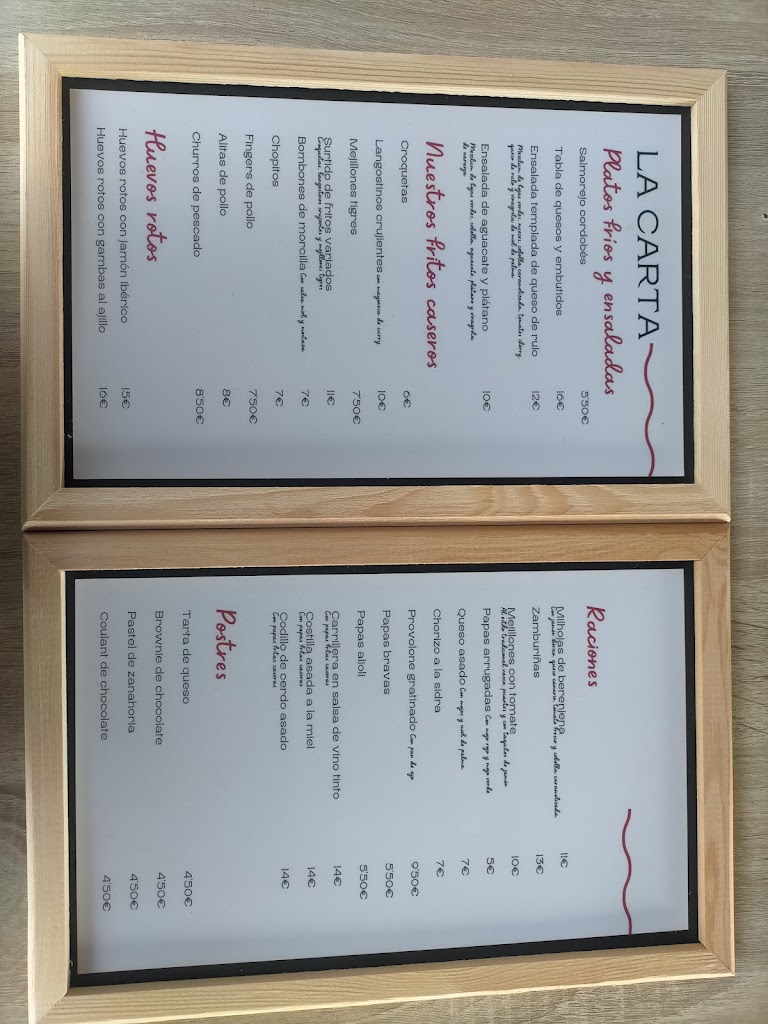 LA CARTA
Platos fríos y ensaladas
Salmorejo cordobés 5'50€
Tabla de quesos y embutidos 16€
Ensalada templada de queso de rulo 12€
Mezclum de hojas verdes, nueces, cebolla caramelizada, tomates cherry,
queso de rulo y vinagreta de miel de palma
Ensalada de aguacate y plátano 10€
Mezclum de hojas verdes, cebolla, aguacate, plátano y vinagreta
de mango
Nuestros fritos caseros
Croquetas 6€
Langostinos crujientes con mayonesa de curry 10€
Mejillones tigres 7'50€
Surtido de fritos variados 11€
Croquetas, langostinos crujientes y mejillones tigres
Bombones de morcilla Con salsa miel y mostaza 7€
Chopitos 7€
Fingers de pollo 7'50€
Alitas de pollo 8€
Churros de pescado 8'50€
Huevos rotos
Huevos rotos con jamón ibérico 15€
Huevos rotos con gambas al ajillo 16€
Raciones
Milhojas de berenjena 11€
Con jamón ibérico, queso canario, tomate fresco y cebolla caramelizada
Zamburiñas 13€
Mejillones con tomate 10€
Al estilo tradicional, unos picantes y con taquitos de jamón
Papas arrugadas Con mojo rojo y mojo verde 5€
Queso asado Con mojo y miel de palma 7€
Chorizo a la sidra 7€
Provolone gratinado Con pan de ajo 9'50€
Papas bravas 5'50€
Papas alioli 5'50€
Carrillera en salsa de vino tinto 14€
Con papas fritas caseras
Costilla asada a la miel 14€
Con papas fritas caseras
Codillo de cerdo asado 14€
Con papas fritas caseras
Postres
Tarta de queso 4'50€
Brownie de chocolate 4'50€
Pastel de zanahoria 4'50€
Coulant de chocolate 4'50€